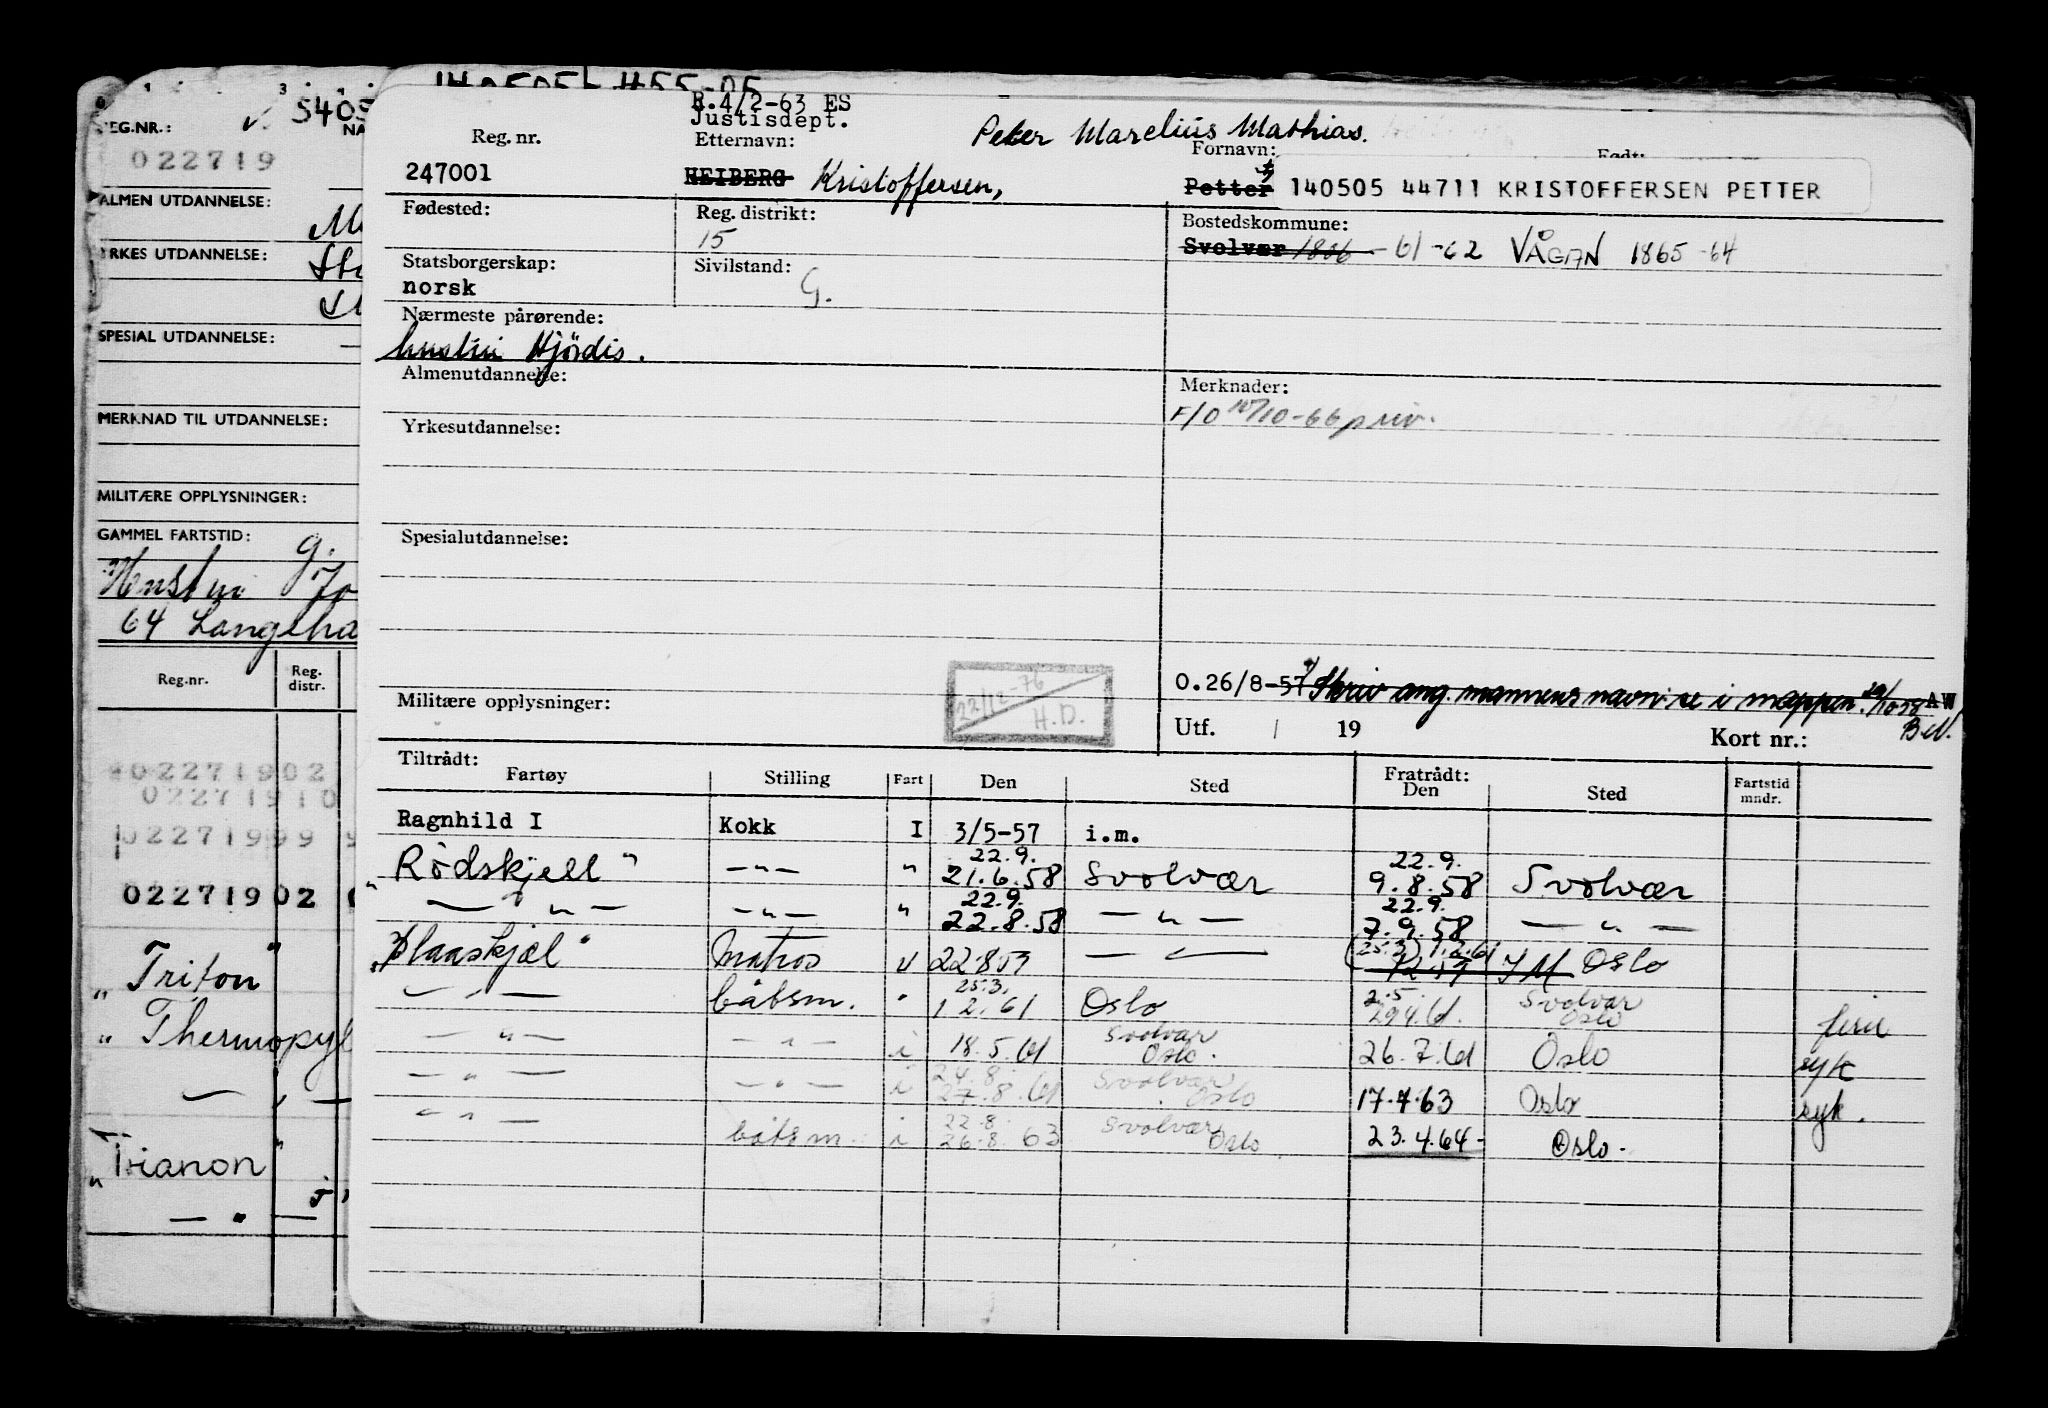 S405
REG.NR.:
022719
ALMEN UTDANNELSE:
YRKES UTDANNELSE:
SPESIAL UTDANNELSE:
MERKNAD TIL UTDANNELSE:
MILITÆRE OPPLYSNINGER:
GAMMEL FARTSTID: g.
64
Reg.nr. Reg. distr.
02271902
02271910
02271999
02271902
"Triton"
"Thermopyl
"Trianon"
R.4/2-63 ES
Justisdept.
Reg. nr. Etternavn: Peter Marelius Mathias.
Fornavn: Født:
247001 HEIBERG Kristoffersen, Petter 140505 44711 KRISTOFFERSEN PETTER
Fødested: Reg. distrikt: Bostedskommune:
15 Svolvær 1806 - 61-62 VÅGAN 1865-64
Statsborgerskap: Sivilstand:
norsk G.
Nærmeste pårørende:
hustru Hjördis.
Almenutdannelse: Merknader:
F/O 10/10-66 priv.
Yrkesutdannelse:
Spesialutdannelse:
22/12-76
H.D.
O.26/8-57 Skriv ang. mannens navn se i mappen. AW
Militære opplysninger: Utf. / 19 Kort nr.:
Tiltrådt: Fratrådt:
Fartøy Stilling Fart Den Sted Den Sted Fartstid mndr.
Ragnhild I Kokk I 3/5-57 i.m.
22.9. 22.9.
"Rødskjell" —"— " 21.6.58 Svolvær 9.8.58 Svolvær
22.9. 22.9.
—"— —"— " 22.8.58 —"— 7.9.58 —"—
(25.3) 1.2.61
Matros 22859 —"— IM Oslo
25.3. 2.5. Svolvær
—"— båtsm. " 1 2.61 Oslo 29.4.61. Oslo ferie
Svolvær
—"— —"— i 18.5.61 Oslo. 26.7.61 Oslo syk
24.8. Svolvær
—"— —"— i 27.8.61 Oslo 17.7.63 Oslo syk.
22.8. Svolvær
—"— båtsm. i 26.8.63 Oslo 23.4.64- Oslo.